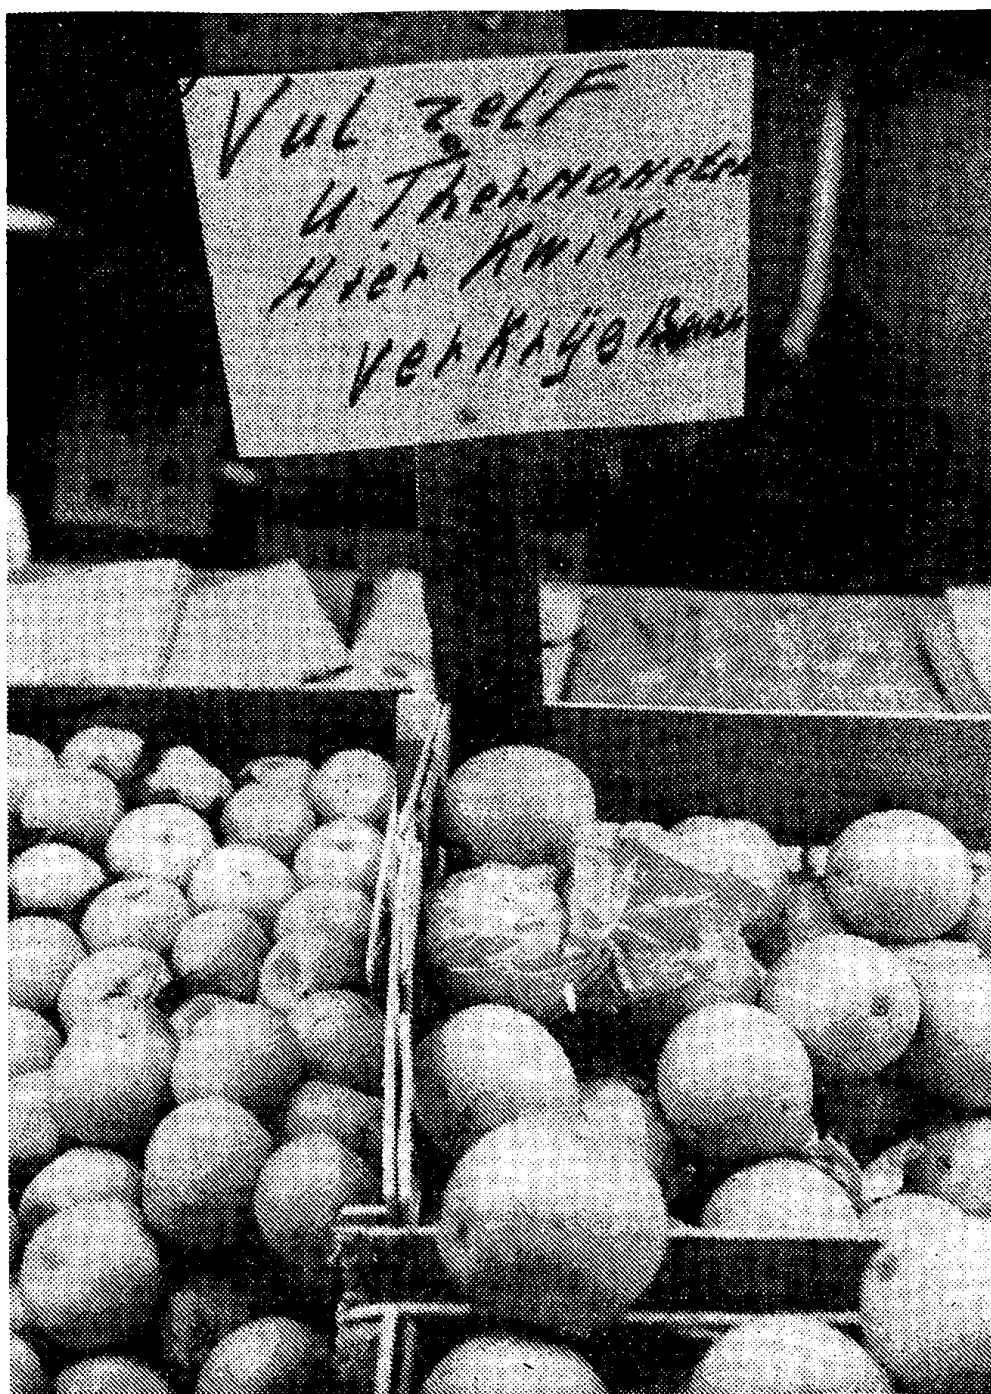 Vul zelf
u Thermometer
Hier Kwik
verkrijgbaar